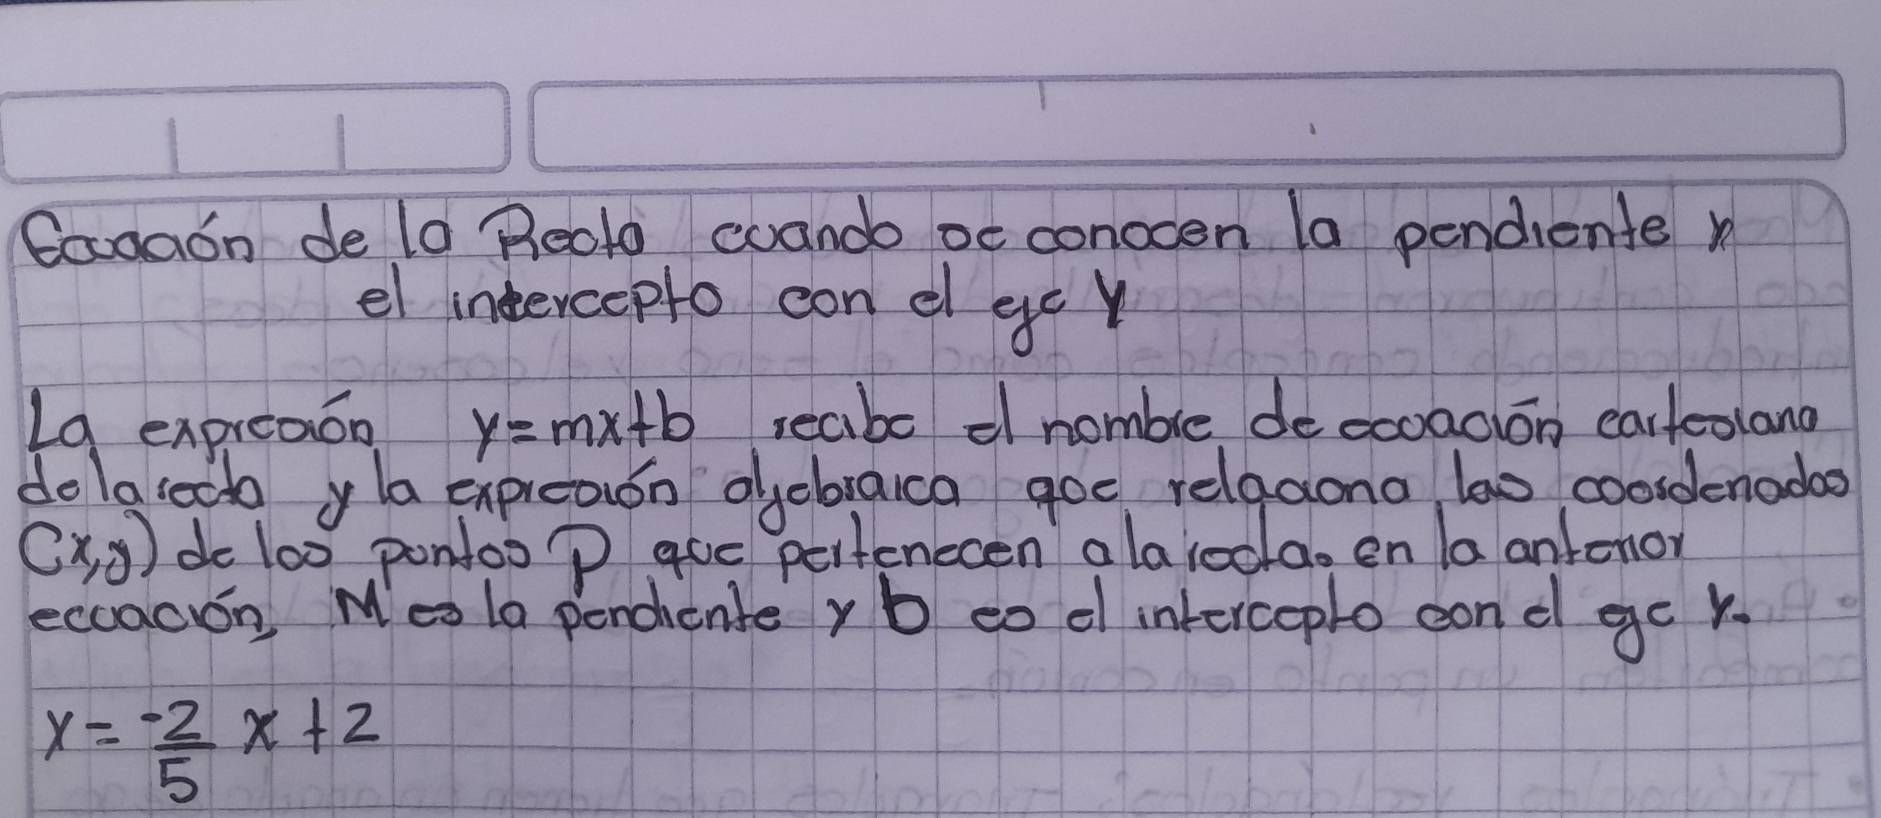 Ecuación de la Recta cuando se conocen la pendiente y
el intercepto con el eje y
La expresión y=mx+b recibe el nombre de ecuación cartesiana
de la recta y la expresión algebraica que relaciona las coordenadas
(x,y) de los puntos P que pertenecen a la recta. en la anterior
ecuación, M es la pendiente y b es el intercepto con el eje y.
y = -2/5 x + 2